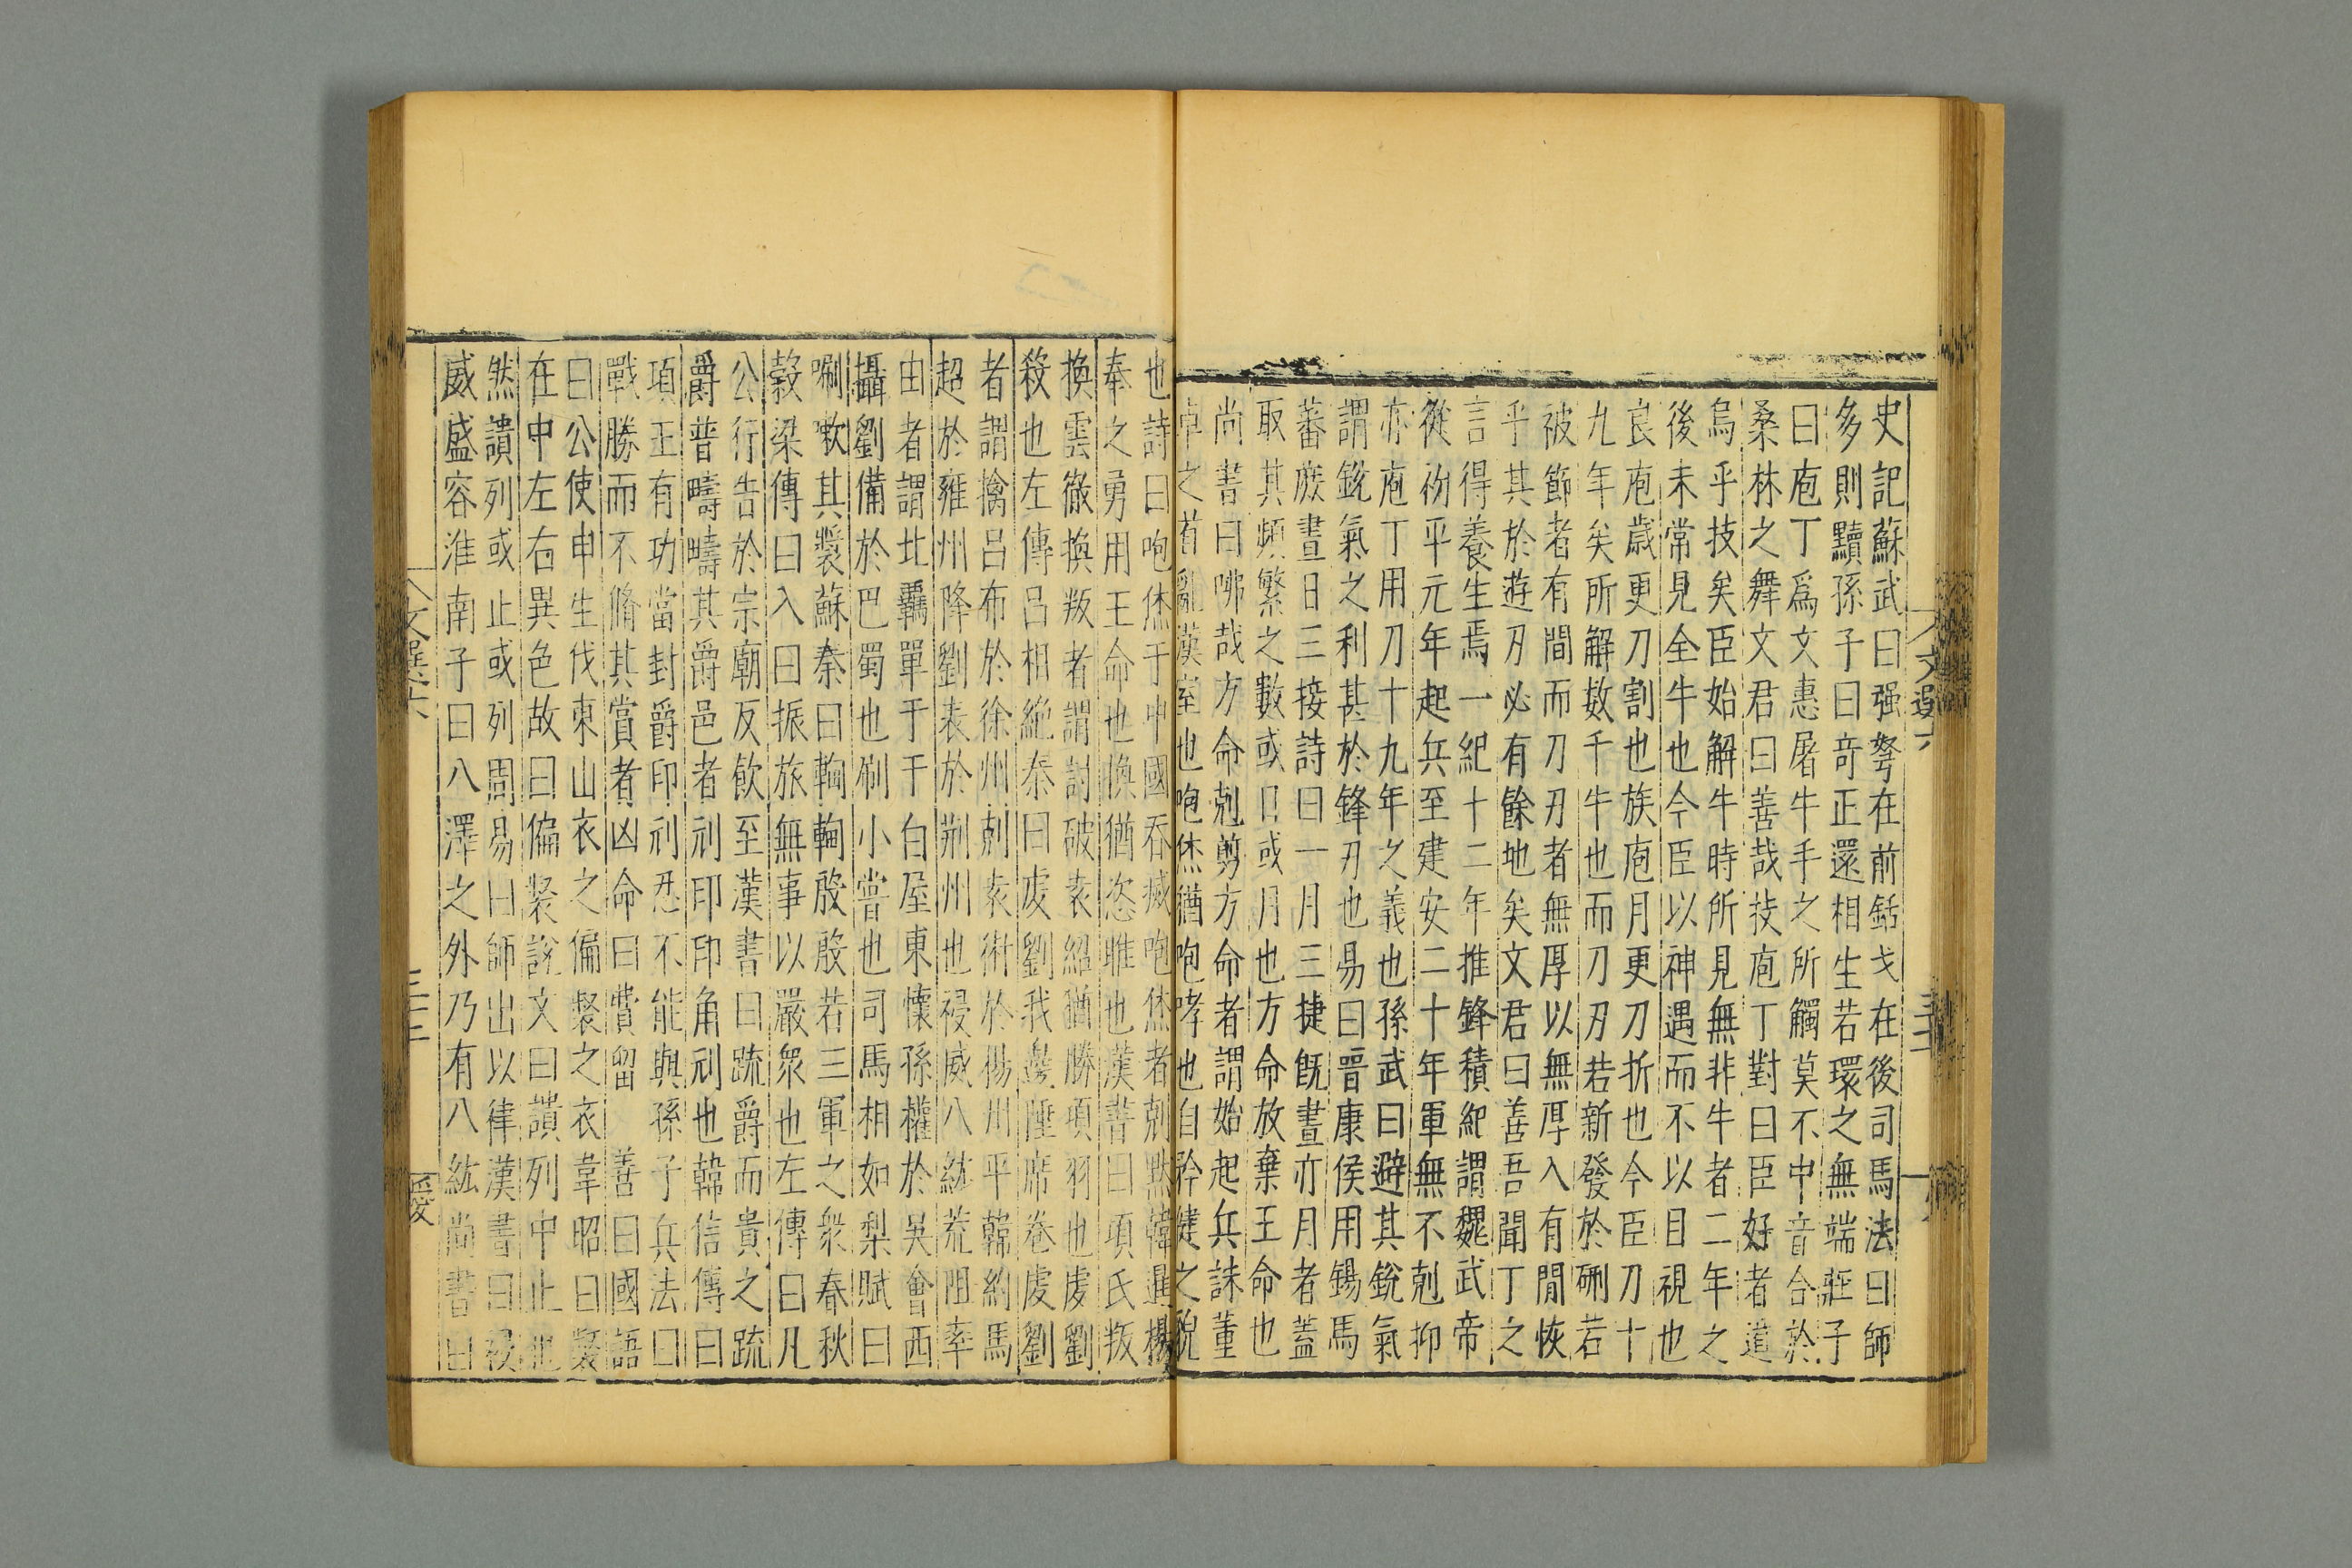 史記蘇武曰强弩在前銛戈在後司馬法曰師
多則黷孫子曰竒正還相生若環之無端莊子
曰庖丁爲文惠屠牛手之所觸莫不中音合於
桑林之舞文君曰善哉技庖丁對曰臣好者道
烏乎技矣臣始解牛時所見無非牛者二年之
後未常見全牛也今臣以神遇而不以目視也
良庖歲更刀割也族庖月更刀折也今臣刀十
九年矣所解数千牛也而刀刃若新發於硎若
被節者有間而刀刃者無厚以無厚入有間恢
乎其於遊刃必有餘地矣文君曰善吾聞丁之
言得養生焉一紀十二年推鋒積紀謂魏武帝
從初平元年起兵至建安二十年軍無不剋抑
亦庖丁用刀十九年之義也孫武曰避其銳氣
謂銳氣之利甚於鋒刃也易曰晉康侯用錫馬
蕃庶晝日三接詩曰一月三捷旣晝亦月者蓋
取其頻繁之數或日或月也方命放棄王命也
尚書曰咈哉方命剋剪方命者謂始起兵誅董
卓之首亂漢室也咆烋猶咆哮也自矜健之貌
也詩曰咆烋于中國吞滅咆烋者剋黜韓暹楊
奉之勇用王命也換猶恣睢也漢書曰項氏叛
換雲徹換叛者謂討破袁紹猶勝項羽也虔劉
殺也左傳吕相絶秦曰虔劉我邊陲席卷虔劉
者謂擒吕布於徐州剋袁術於揚州平韓約馬
超於雍州降劉表於荆州也祲威八紘荒阻率
由者謂北羈單于于白屋東懷孫權於吴會西
攝劉備於巴蜀也刷小嘗也司馬相如梨賦曰
唰嗽其漿蘇秦曰輷輷殷殷若三軍之衆春秋
穀梁傳曰入曰振旅無事以嚴衆也左傳曰凡
公行告於宗廟反飲至漢書曰疏爵而貴之疏
爵普疇疇其爵邑者刓印印角刓也韓信傳曰
項王有功當封爵印刓忍不能與孫子兵法曰
戰勝而不脩其賞者凶命曰費留 善曰國語
曰公使申生伐東山衣之偏裻之衣韋昭曰裻
在中左右異色故曰偏裻說文曰讃列中止也
然讃列或止或列周易曰師出以律漢書曰祲
威盛容淮南子曰八澤之外乃有八紘尚書曰
文選六